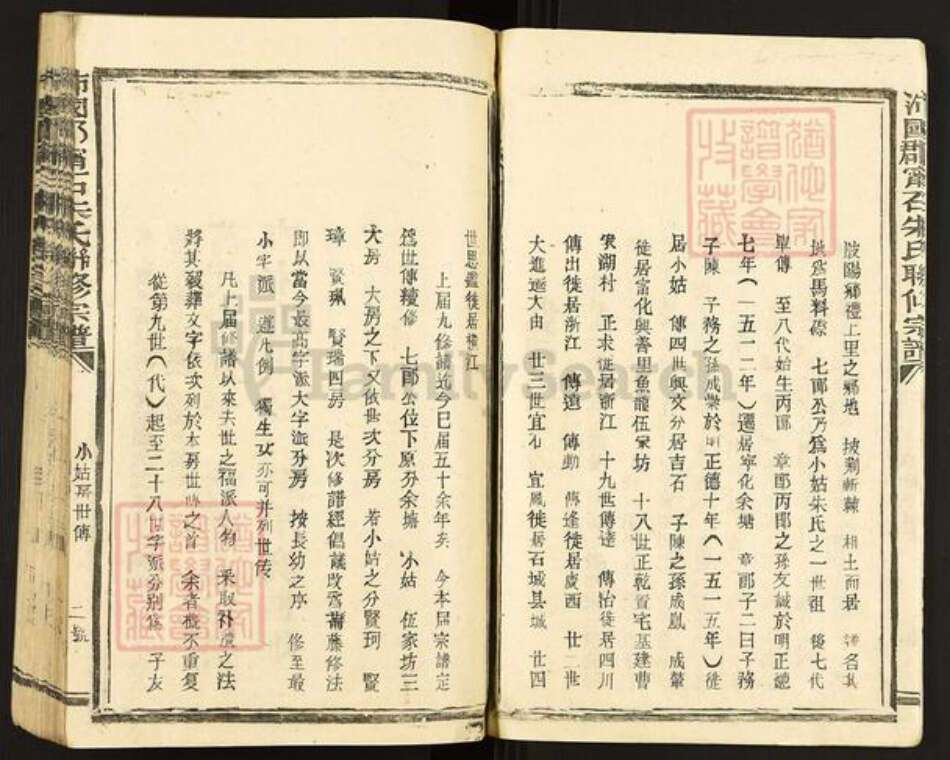 沛國郡甯石朱氏聯修宗譜
陂陽鄉禮上里之鄉地 披荆斬棘 相土而居 洋名其
地爲馬料 七郎公乃爲小姑朱氏之一世祖 後七代
單傳 至八代始生丙郎 章郎丙郎之孫友誠於明正德
七年(一五一二年)遷居寧化余塘 章郎子二曰子務
子陳 子務之孫成榮於明正德十年(一五一五年)徙
居小姑 傳四世與文分居吉石 子陳之孫成胤 成肇
徙居富化興善里魚龍伍家坊 十八世正乾置宅基建曹
家湖村 正求徙居浙江 十九世傳達 傳怡徙居四川
傳出徙居浙江 傳遠 傳勳 傳逢徙居廣西 廿一世
大進遷大由 廿三世宜 宜鳳徙居石城县城 廿四
世思鑑徙居橫江
上届九修譜迄今已届五十余年矣 今本届宗譜定
爲世傳續修 七郎公位下原分余塘 小姑 伍家坊三
大房 大房之下又依世次分房 若小姑之分賢珂 賢
璋 賢珮 賢瑞四房 是次修譜經倡議改爲 藤修法
即以當今最高字派大字派分房 按長幼之序 修至最
小字派 遵凡例 獨生女亦可并列世传
凡上届修譜以來去世之福派人物 采取补遗之法
將其 文字依次列於本房世 之首 余者概不重复
從第九世(代)起至二十八世字派分别 子友
小姑房世傳
二號
沛國郡甯石朱氏聯修宗譜
猶他家
譜學會
收藏
猶他家
譜學會
收藏
FamilySearch